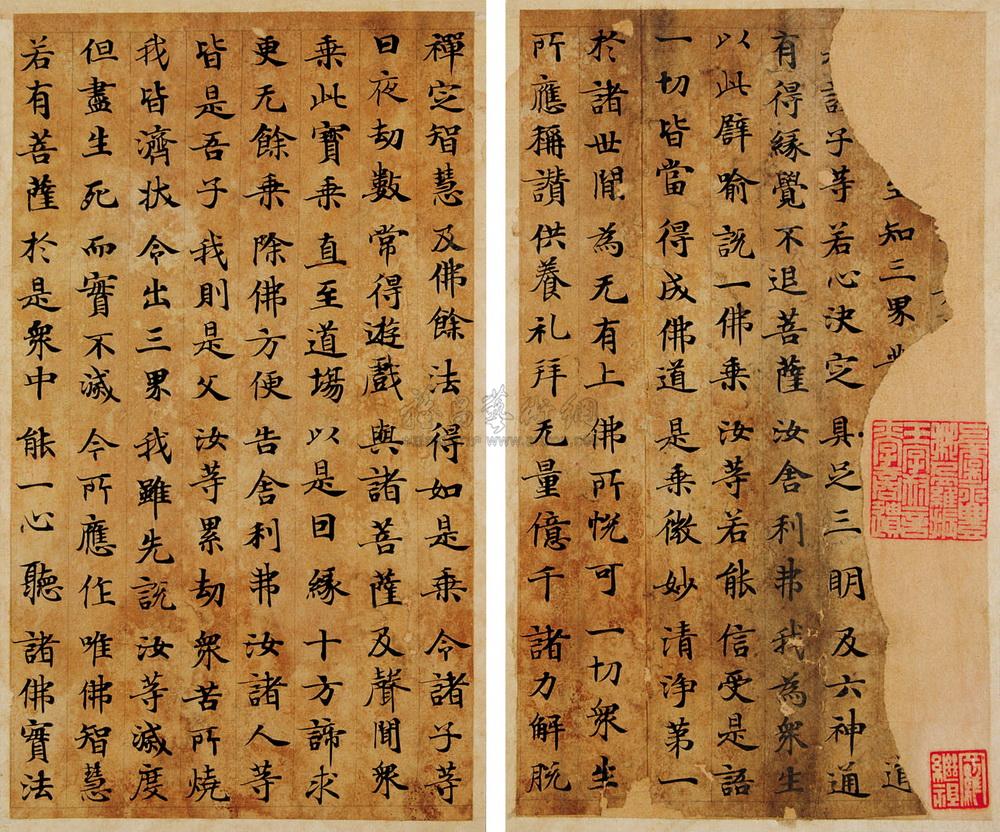 知三界 道
諸子等 若心決定 具足三明 及六神通
有得緣覺 不退菩薩 汝舍利弗 我為眾生
以此譬喻 說一佛乘 汝等若能 信受是語
一切皆當 得成佛道 是乘微妙 清淨第一
於諸世間 為无有上 佛所悅可 一切眾生
所應稱讚 供養礼拜 无量億千 諸力解脫
禪定智慧 及佛餘法 得如是乘 令諸子等
日夜劫數 常得遊戲 與諸菩薩 及聲聞眾
乘此寶乘 直至道場 以是因緣 十方諦求
更无餘乘 除佛方便 告舍利弗 汝諸人等
皆是吾子 我則是父 汝等累劫 眾苦所燒
我皆濟拔 令出三界 我雖先說 汝等滅度
但盡生死 而實不滅 今所應作 唯佛智慧
若有菩薩 於是眾中 能一心聽 諸佛實法
繼祖